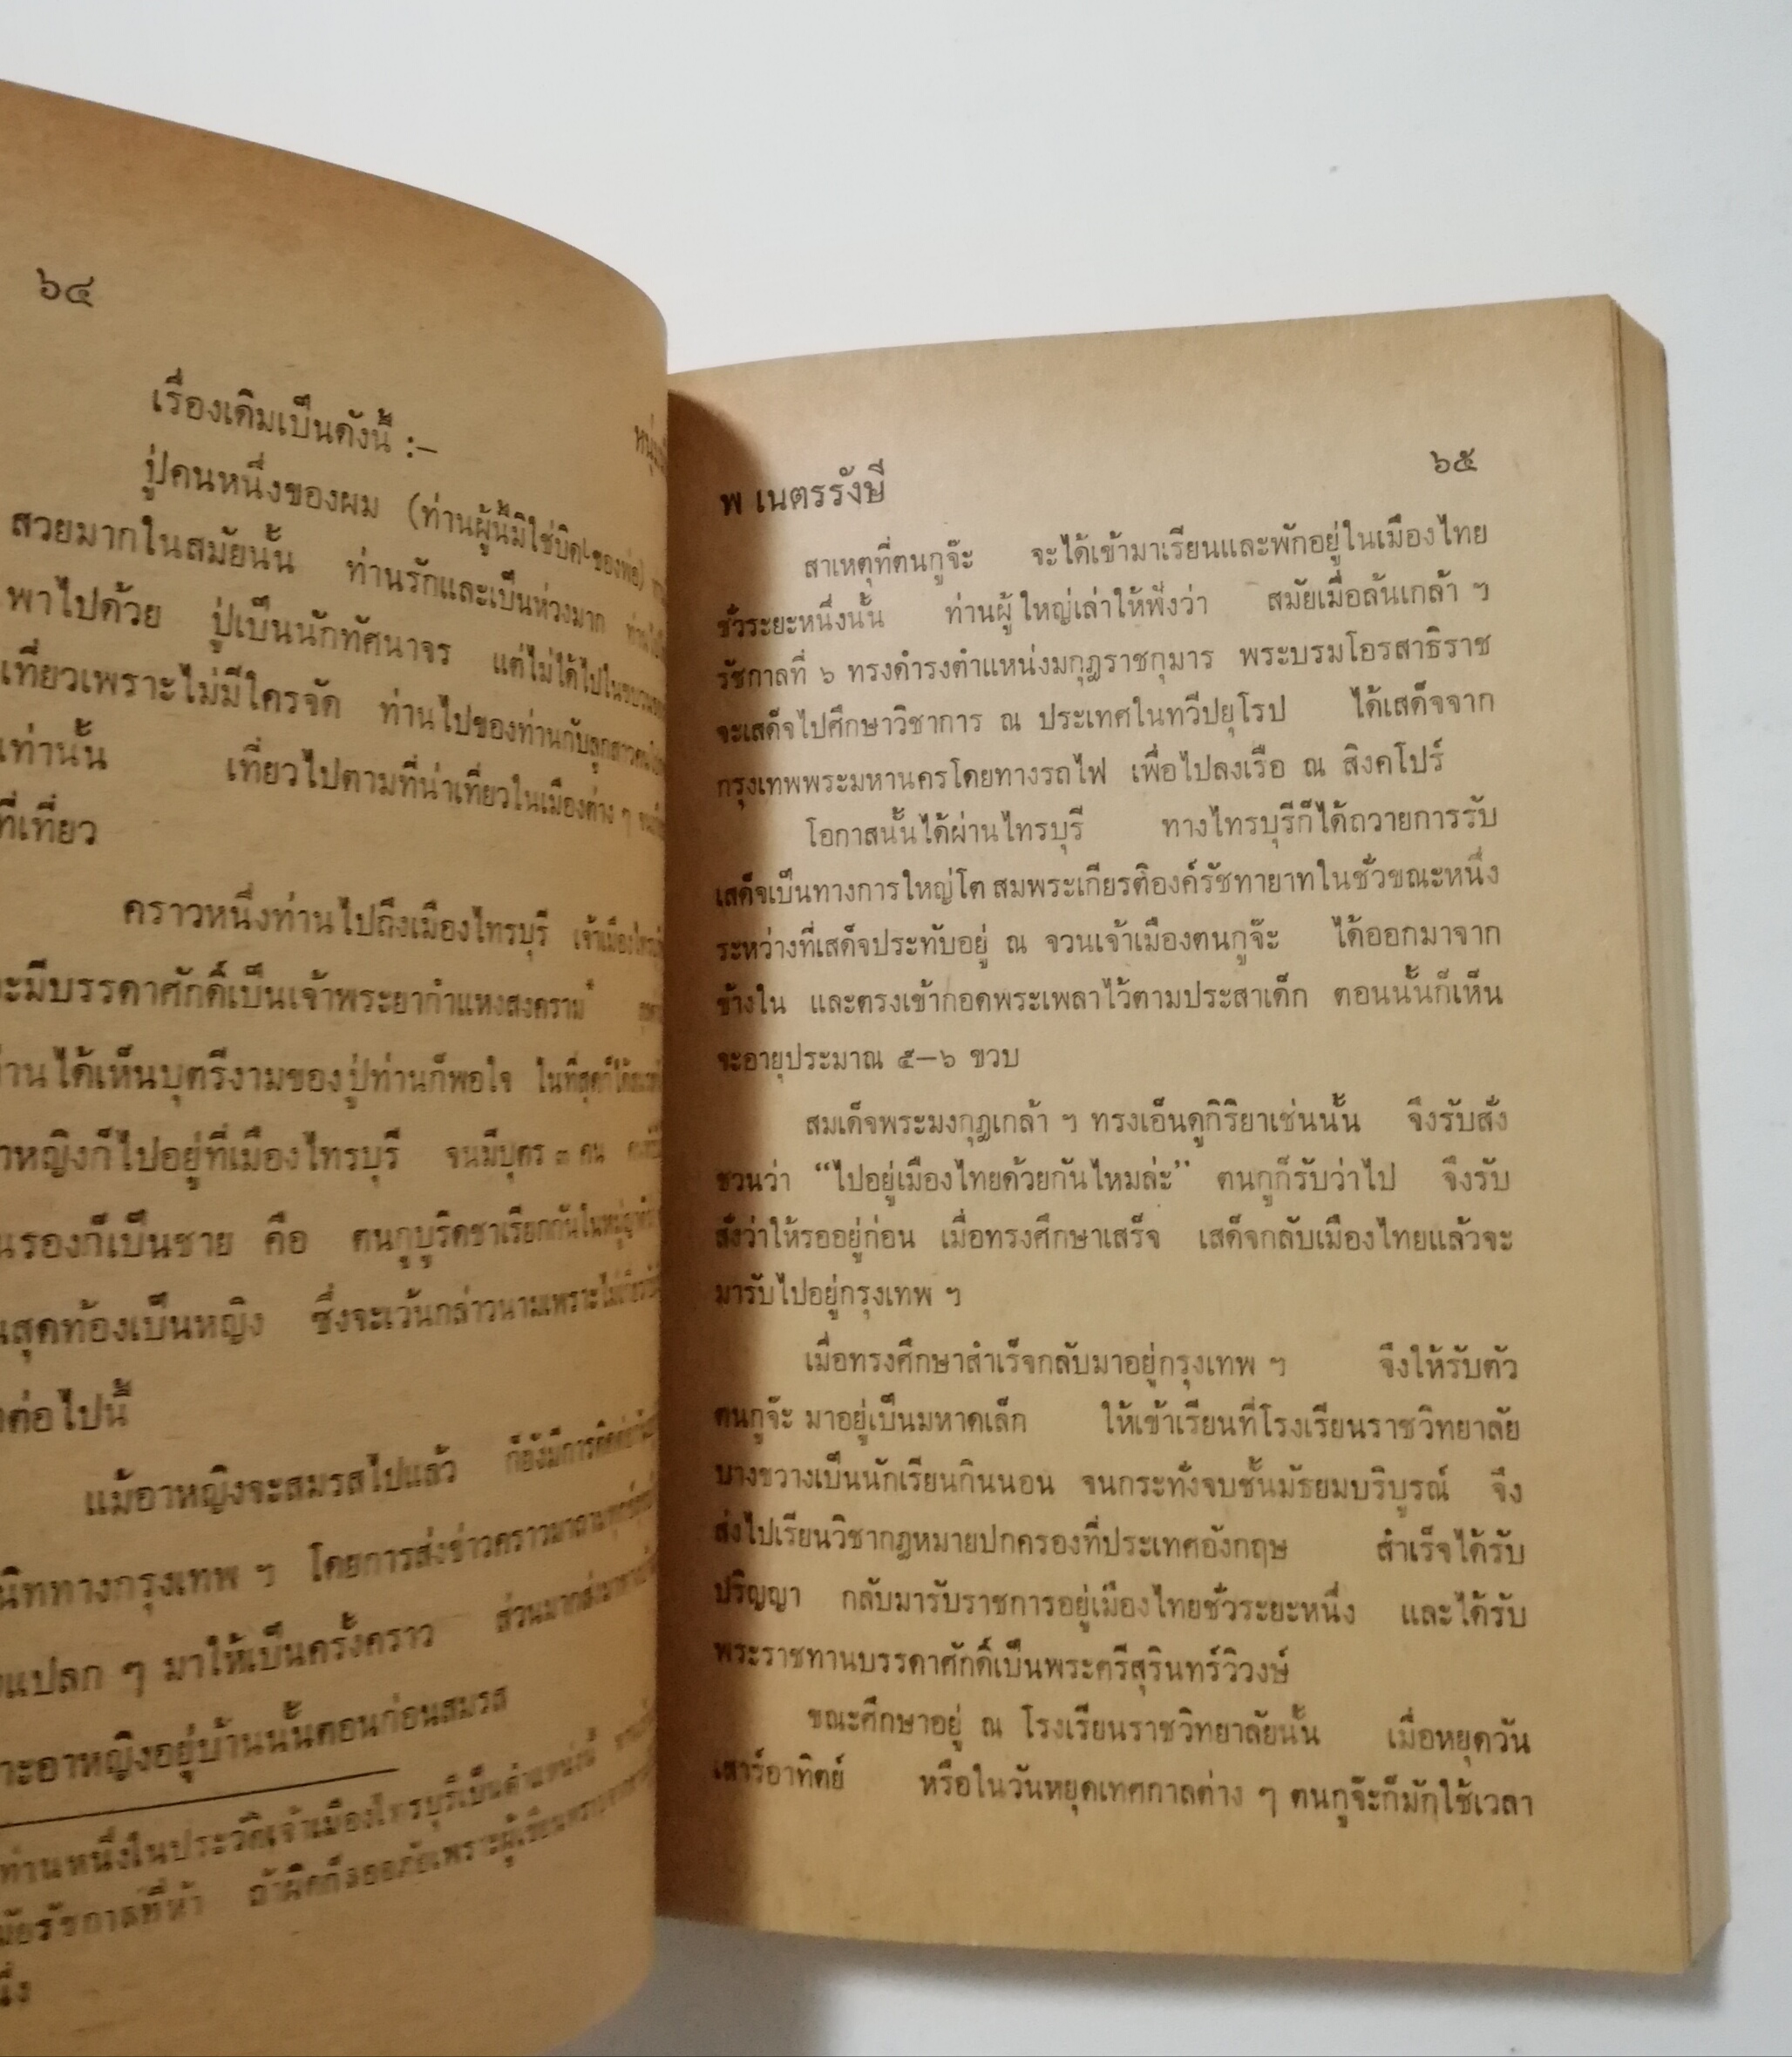 ๖๔
เรื่องเดิมเป็นดังนี้ :–
ปู่คนหนึ่งของผม (ท่านผู้นี้มิใช่บิดาของพ่อ)
สวยมากในสมัยนั้น ท่านรักและเป็นห่วงมาก
พาไปด้วย ปู่เป็นนักทัศนาจร แต่ไม่ได้ไปในขบวน
เที่ยวเพราะไม่มีใครจัด ท่านไปของท่านกับลูกสาว
เท่านั้น เที่ยวไปตามที่น่าเที่ยวในเมืองต่าง ๆ
ที่เที่ยว
คราวหนึ่งท่านไปถึงเมืองไทรบุรี
มีบรรดาศักดิ์เป็นเจ้าพระยากำแหงสงคราม
ได้เห็นบุตรีงามของปู่ท่านก็พอใจ
หญิงก็ไปอยู่ที่เมืองไทรบุรี จนมีบุตร ๓ คน
รองก็เป็นชาย คือ ตนกูบูริดชาเรียกกันในหมู่ญาติ
สุดท้องเป็นหญิง ซึ่งจะเว้นกล่าวนามเพราะไม่
ต่อไปนี้
แม้อาหญิงจะสมรสไปแล้ว ก็ยังมีการติดต่อ
ทางกรุงเทพ ฯ โดยการส่งข่าวคราวมา
แปลก ๆ มาให้เป็นครั้งคราว ส่วนมาก
อาหญิงอยู่บ้านนั้นตอนก่อนสมรส
ท่านหนึ่งในประวัติเจ้าเมืองไทรบุรีเป็นตำแหน่งนี้
รัชกาลที่ห้า ถ้าผิดก็ขออภัยเพราะผู้เขียน
พ เนตรรังษี
๖๕
สาเหตุที่ตนกูจ๊ะ จะได้เข้ามาเรียนและพักอยู่ในเมืองไทย
ชั่วระยะหนึ่งนั้น ท่านผู้ใหญ่เล่าให้ฟังว่า สมัยเมื่อล้นเกล้า ฯ
รัชกาลที่ ๖ ทรงดำรงตำแหน่งมกุฎราชกุมาร พระบรมโอรสาธิราช
จะเสด็จไปศึกษาวิชาการ ณ ประเทศในทวีปยุโรป ได้เสด็จจาก
กรุงเทพพระมหานครโดยทางรถไฟ เพื่อไปลงเรือ ณ สิงคโปร์
โอกาสนั้นได้ผ่านไทรบุรี ทางไทรบุรีก็ได้ถวายการรับ
เสด็จเป็นทางการใหญ่โต สมพระเกียรติองค์รัชทายาทในชั่วขณะหนึ่ง
ระหว่างที่เสด็จประทับอยู่ ณ จวนเจ้าเมืองตนกูจ๊ะ ได้ออกมาจาก
ข้างใน และตรงเข้ากอดพระเพลาไว้ตามประสาเด็ก ตอนนั้นก็เห็น
จะอายุประมาณ ๕–๖ ขวบ
สมเด็จพระมงกุฎเกล้า ฯ ทรงเอ็นดูกิริยาเช่นนั้น จึงรับสั่ง
ชวนว่า “ไปอยู่เมืองไทยด้วยกันไหมล่ะ” ตนกูก็รับว่าไป จึงรับ
สั่งว่าให้รออยู่ก่อน เมื่อทรงศึกษาเสร็จ เสด็จกลับเมืองไทยแล้วจะ
มารับไปอยู่กรุงเทพ ฯ
เมื่อทรงศึกษาสำเร็จกลับมาอยู่กรุงเทพ ฯ จึงให้รับตัว
ตนกูจ๊ะ มาอยู่เป็นมหาดเล็ก ให้เข้าเรียนที่โรงเรียนราชวิทยาลัย
บางขวางเป็นนักเรียนกินนอน จนกระทั่งจบชั้นมัธยมบริบูรณ์ จึง
ส่งไปเรียนวิชากฎหมายปกครองที่ประเทศอังกฤษ สำเร็จได้รับ
ปริญญา กลับมารับราชการอยู่เมืองไทยชั่วระยะหนึ่ง และได้รับ
พระราชทานบรรดาศักดิ์เป็นพระศรีสุรินทร์วิวงษ์
ขณะศึกษาอยู่ ณ โรงเรียนราชวิทยาลัยนั้น เมื่อหยุดวัน
เสาร์อาทิตย์ หรือในวันหยุดเทศกาลต่าง ๆ ตนกูจ๊ะก็มักใช้เวลา